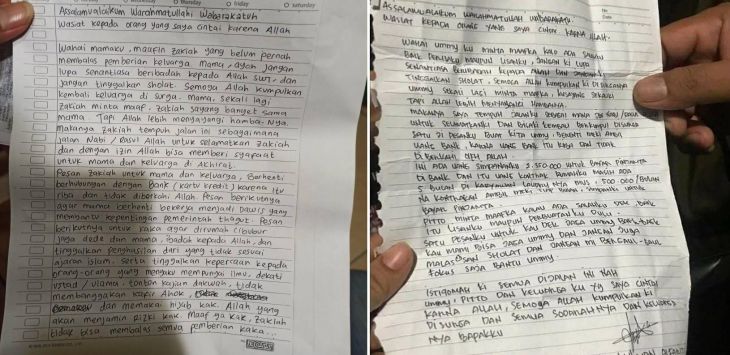 Wednesday
Thursday
friday
saturday
Assalamualaikum Warahmatullahi Wabarakatuh
Wasiat kepada orang yang saya cintai karena Allah
Wahai mamaku, maafin Zakiah yang belum pernah
membalas pemberian keluarga. mama, ayah jangan
lupa senantiasa beribadah kepada Allah SWT, dan
jangan tinggalkan sholat. Semoga Allah kumpulkan
kembali keluarga di surga. mama, sekali lagi
zakiah minta maaf. zakiah sayang banget sama
mama. Tapi Allah lebih menyayangi hamba-Nya.
makanya zakiah tempuh jalan ini sebagaimana
jalan Nabi / Rasul Allah untuk selamatkan zakiah
dan dengan izin Allah bisa memberi syafaat
untuk mama dan keluarga di Akhirat.
Pesan Zakiah untuk mama dan keluarga, Berhenti
berhubungan dengan Bank (kartu kredit) karena itu
riba dan tidak diberkahi Allah. Pesan berikutnya
agar mama berhenti bekerja menjadi Dawis yang
membantu kepentingan pemerintah thagut. Pesan
berikutnya untuk kaka agar dirumah cibubur
jaga dede dan mama, ibadah kepada Allah, dan
tinggalkan penghasilan dari yang tidak sesuai
ajaran islam. serta tinggalkan kepercayaan kepada
orang-orang yang mengaku mempunyai ilmu, dekati
ustad / ulama. tonton kajian dakwah, tidak
membanggakan kafir Ahok,
dan memakai hijab kak. Allah yang
akan menjamin rizki kak. Maaf ya kak, zakiah
tidak bisa membalas semua pemberian kaka...
No
Date
Assalamualaikum Warahmatullah Wabarakatu
Wasiat kepada orang yang saya cintai karna Allah.
Wahai ummy ku minta maaf kalo ada salah
baik perilaku maupun lisanku, jangan ki lupa
senantiasa beribadah kepada Allah dan jangan ki
tinggalkan sholat, semoga Allah kumpulkan ki di surganya
ummy sekali lagi minta maafka, kusayang sekaliki
tapi Allah lebih menyayangi hambanya.
makanya saya tempuh jalanku
untuk selamatkanki dan bisaki kembali berkumpul disurga
satu ji pesanku buat kita ummy berhenti maki ambil
uang bank, karna uang bank itu riba dan tidak
diberkahi oleh Allah
ini ada uang simpananku 2.350.000 untuk bayar
di bank dan itu uang kontrak rumahku masih ada
5 bulan di 500.000/bulan
Pitto minta maafka kalau ada salahku dek, baik
itu lisanku maupun perbuatanku dulu
satu pesanku untuk kau dek jaga ummy baik-baik
kau mami bisa jaga ummy dan jangan juga
malas sholat dan jangan mi bergaul-gaul
fokus saja bantu ummy.
Istiqomah ki semua di jalan ini nah
ummy, Pitto dan keluarga ku yg saya cintai
karna Allah, semoga Allah kumpulkan ki
disurga dan semua sodaraku dan keluarga
nya bapakku